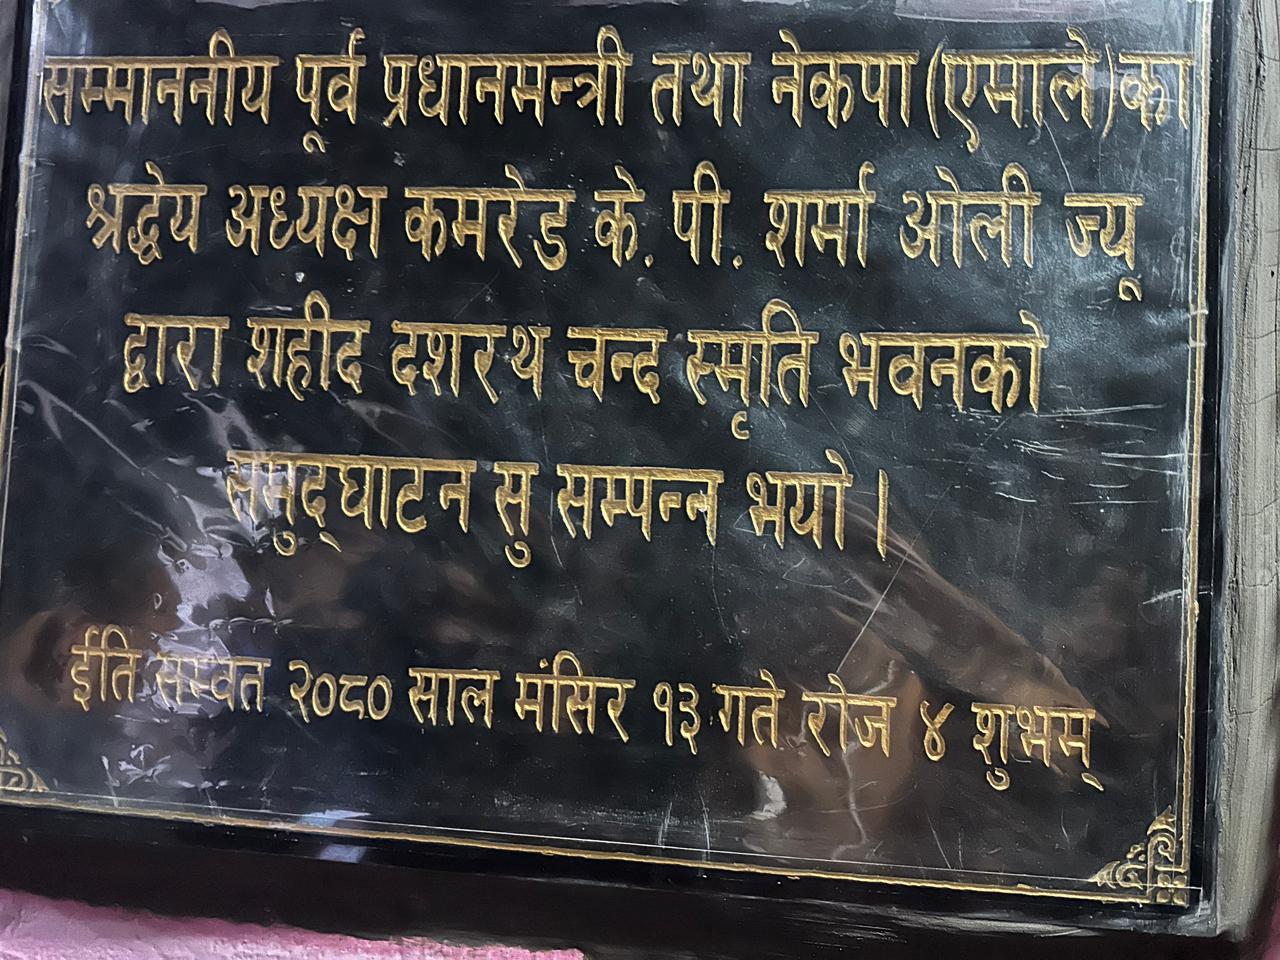 सम्माननीय पूर्व प्रधानमन्त्री तथा नेकपा(एमाले)का
श्रद्धेय अध्यक्ष कमरेड के. पी. शर्मा ओली ज्यू
द्वारा शहीद दशरथ चन्द स्मृति भवनको
समुद्‌घाटन सु सम्पन्न भयो ।
ईति सम्वत २०८० साल मंसिर १३ गते रोज ४ शुभम्